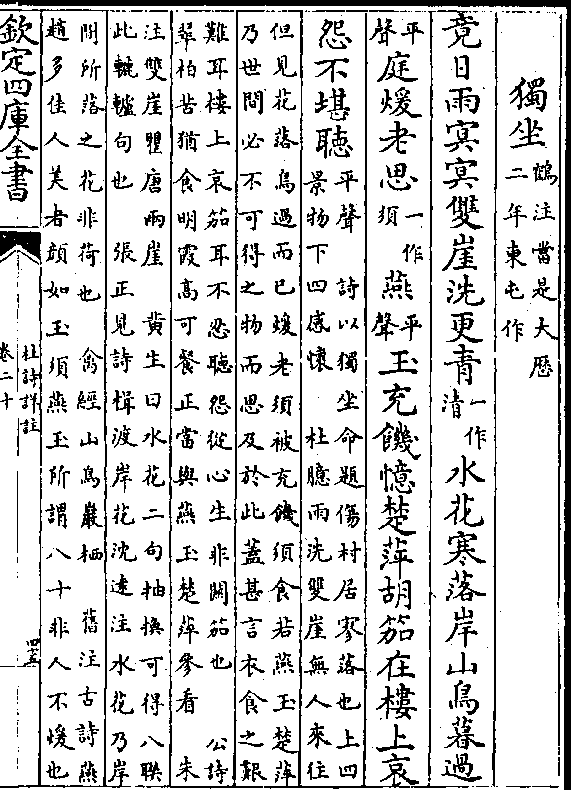 獨坐鶴注當是大厯
二年東屯作
竟日雨冥冥雙崖洗更青一作清水花寒落岸山鳥暮過
平聲庭煖老思一作須燕平聲玉充饑憶楚萍胡笳在樓上哀
怨不堪聽平聲 詩以獨坐命題傷村居寥落也上四
景物下四感懷 杜臆雨洗雙崖無人來往
但見花落鳥過而已煖老須被充饑須食若燕玉楚萍
乃世間必不可得之物而思及於此蓋甚言衣食之艱
難耳樓上哀笳耳不忍聽怨從心生非關笳也 公詩
翠柏苦猶食明霞高可餐正當與燕玉楚萍參看 朱
注雙崖瞿唐兩崖 黄生曰水花二句抽換可得八聯
此轆轤句也 張正見詩楫渡岸花沈遠注水花乃岸
間所落之花非荷也 禽經山鳥巖栖 舊注古詩燕
趙多佳人美者顔如玉須燕玉所謂八十非人不煖也
欽定四庫全書
杜詩詳註
卷二十